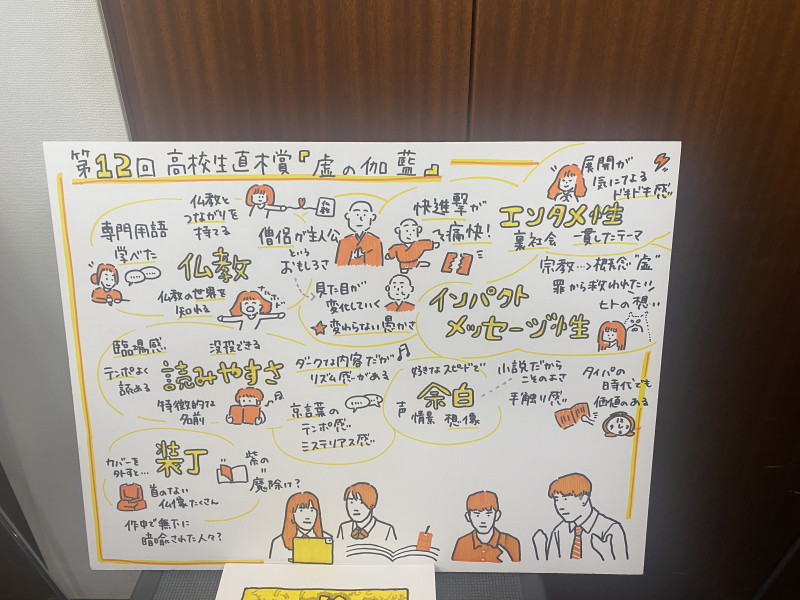 第12回 高校生直木賞『虚の伽藍』
仏教と
つながりを
持てる
専門用語
学べた
仏教
仏教の世界を
知れる
ナルホド
仏教
僧侶が主人公
という
おもしろさ
見た目が
変化していく
★変わらない愚かさ
快進撃が
痛快!
エンタメ性
裏社会 一貫したテーマ
展開が
気になる
ドキドキ感
インパクト
メッセージ性
宗教…→概念"虚"
罪から救われたい
ヒトの想い
臨場感 没投できる
テンポよく
読める
読みやすさ
特徴的な
名前
ダークな内容だが
リズム感がある
京言葉の
テンポ感
ミステリアス感
好きなスピードで
余白
声 情景 想像
小説だから
こそのよさ
手触り感
タイパの
時代でも
価値のある
装丁
カバーを
外すと…
首のない
仏像たくさん
作中で無下に
暗喩された人々?
紫の
魔除け?